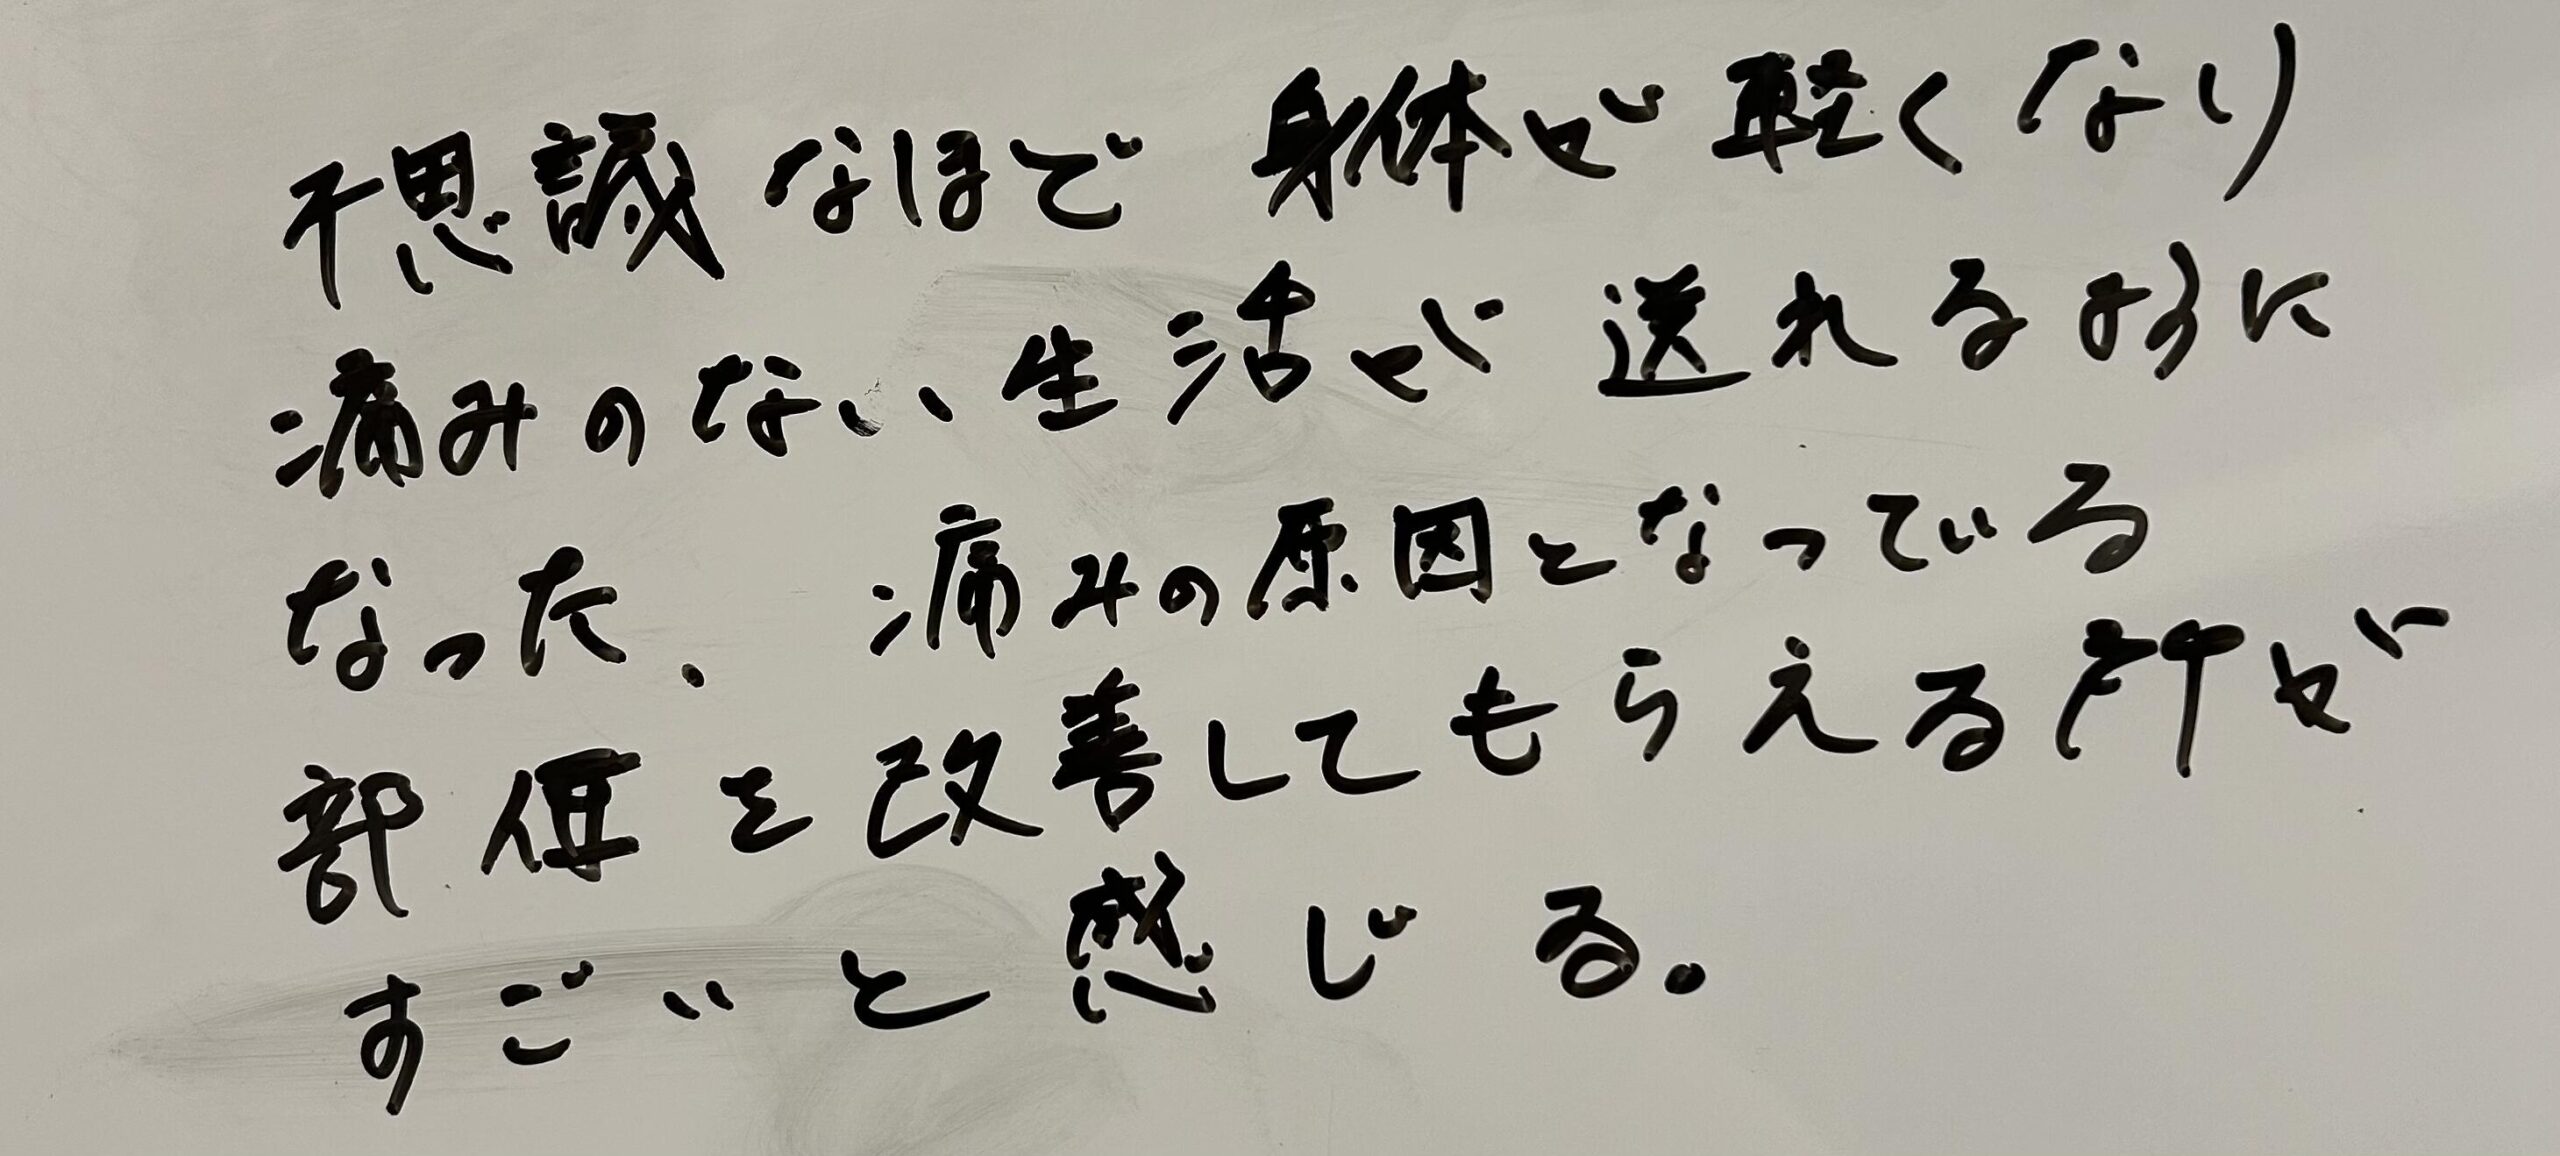 不思議なほど身体が軽くなり
痛みのない生活が送れるように
なった、痛みの原因となっている
部位を改善してもらえる所が
すごいと感じる。